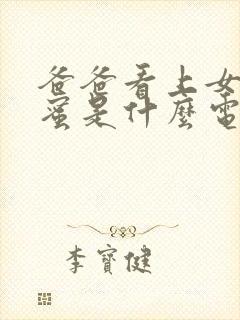 爸爸看上女
蜜是什麼電
李寶健